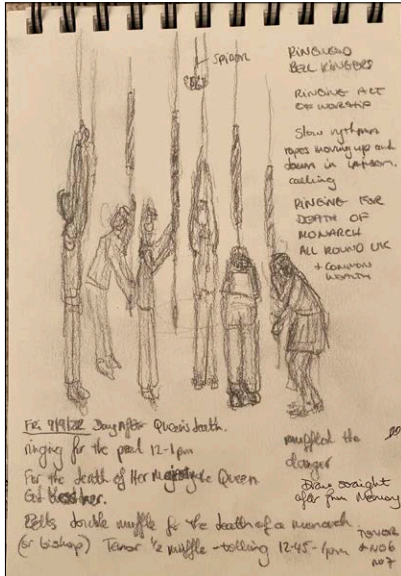 SPIDER
RINGMORE
BELL RINGERS
RINGING ACT
OF WORSHIP
Slow rythmn
ropes moving up and
down in unison.
calling
RINGING FOR
DEATH OF
MONARCH
ALL ROUND UK
+ COMMON
WEALTH
Fri 9/9/22 Day After Queen's death.
ringing for the 12-1pm
For the death of Her Majesty the Queen
God bless her.
Bells double muffle for the death of a monarch
(or bishop) Tenor ½ muffle - tolling 12.45-1pm
muffled the
clanger
Draw straight
after from Memory
TENOR
NO 6
NO 7